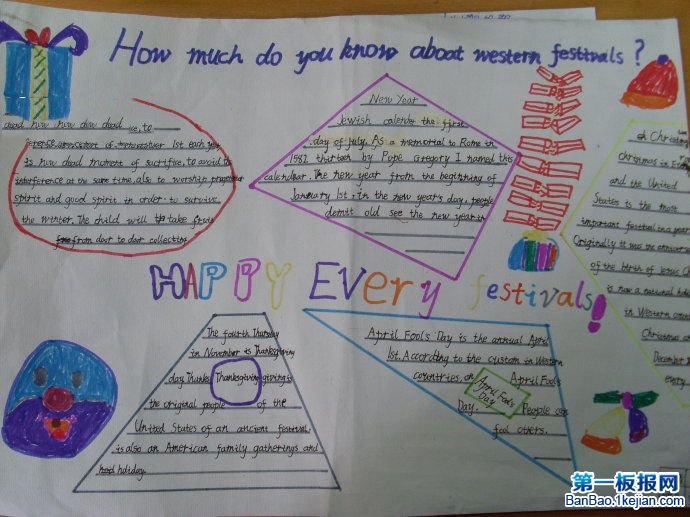 How much do you know aboat western festivals ?
dead how how dow dead ice, to
1st each year
is how dead moment of sacrifice, to avoid to
interference at the same time, also to worship
spirit and good spirit in order to survive
the winter. The child will to take
from door to door collecting
New Year
Jewish calender the first
day of july. As a memorial to Rome in
1982 thirteen by Pope Gregory I named this
calendar. The new year from the beginning of
January 1st. In the new year's day, people
old see the new year in
oh Christm
christmas in
and the United
States is the most
important festival in a year
Originally it was the
of the birth of Jesus C
is now a national holi
in Western
Christmas
December
every
HAPPY EVery festivals!
The fourth Thursday
in November is Thanksgiving
day. Thanks Thanksgiving giving is
the original people of the
United States of an ancient festival,
is also an American family gatherings and
holiday.
April Fool's Day is the annual April
1st. According to the custom in Western
countries, on April Fool's
April Fool's
Day
Day. People can
fool others.
第一板报网
BanBao.1kejian.com